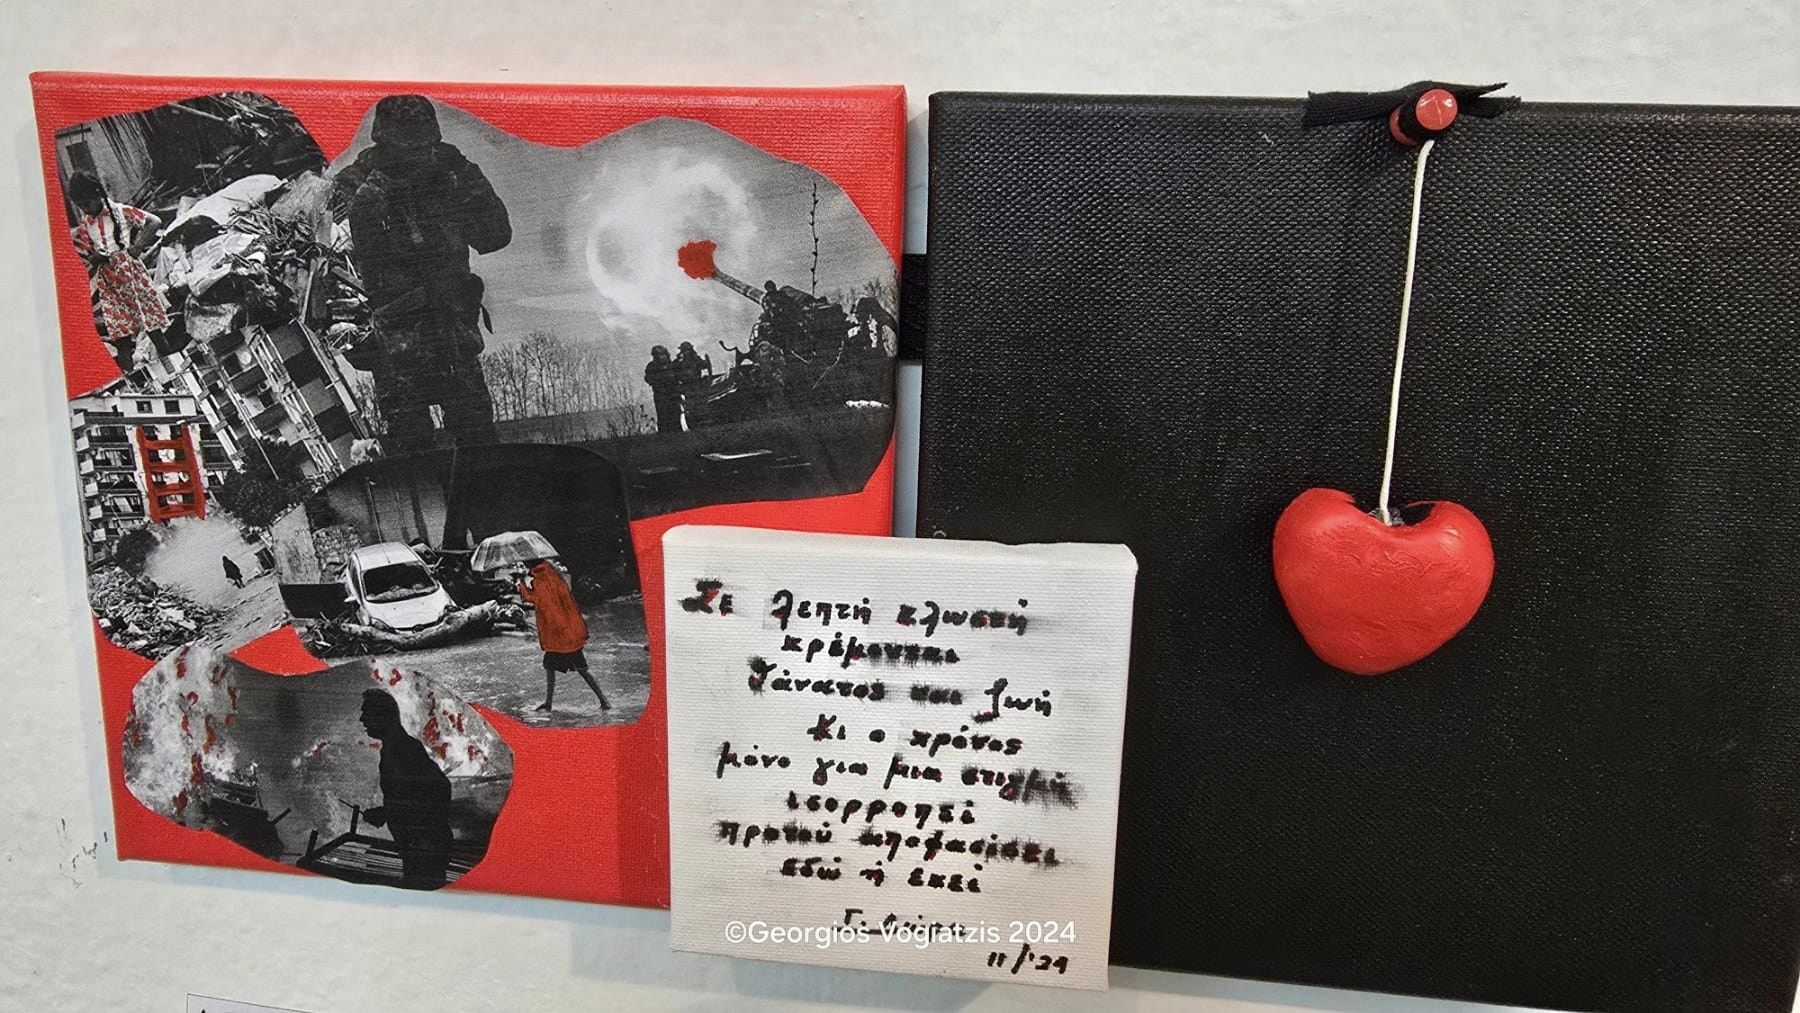 Σε λεπτή κλωστή
κρέμονται
θάνατος και ζωή
Κι ο χρόνος
μόνο για μια στιγμή
ισορροπεί
προτού αποφασίσει
εδώ ή εκεί
Γ.
©Georgios Vogiatzis 2024
11/'24